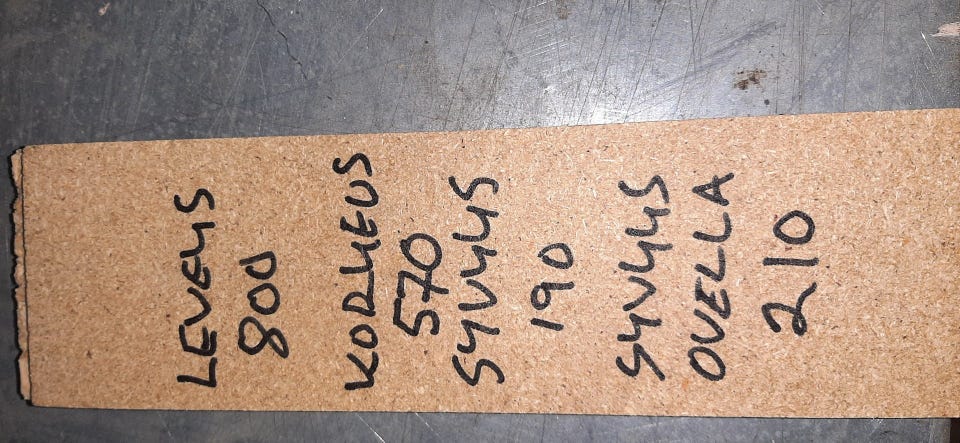 LEVEYS
800
KORKEUS
570
SYVYYS
190
SYVYYS
OVELLA
210